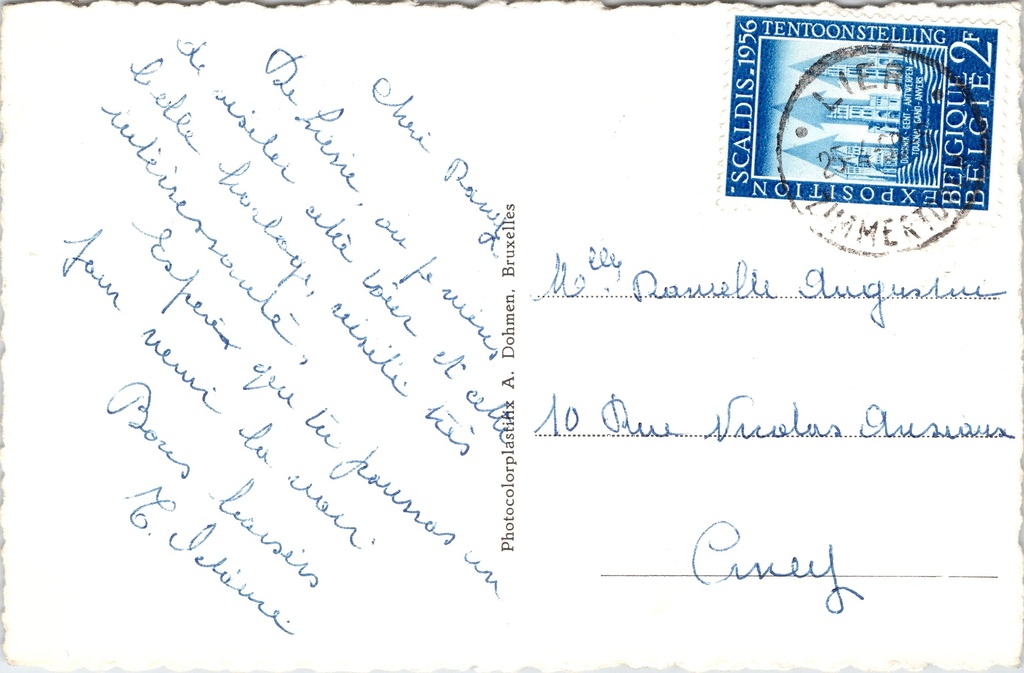 Cheri Dany
De Lierre, où je viens
de visiter cette tour et cette
belle horloge, visite très
intéressante,
Espère que tu pourras un
jour venir la voir.
Bons baisers
Photocolorplastifix A. Dohmen, Bruxelles
SCALDIS.1956
TENTOONSTELLING
EXPOSITION
BELGIQUE
BELGIË
2F
DOORNIK - GENT - ANTWERPEN
TOURNAI - GAND - ANVERS
LIER
25
ZIMMERTO
Melle Danielle Augustin
10 Rue Nicolas Ansiaux
Ciney